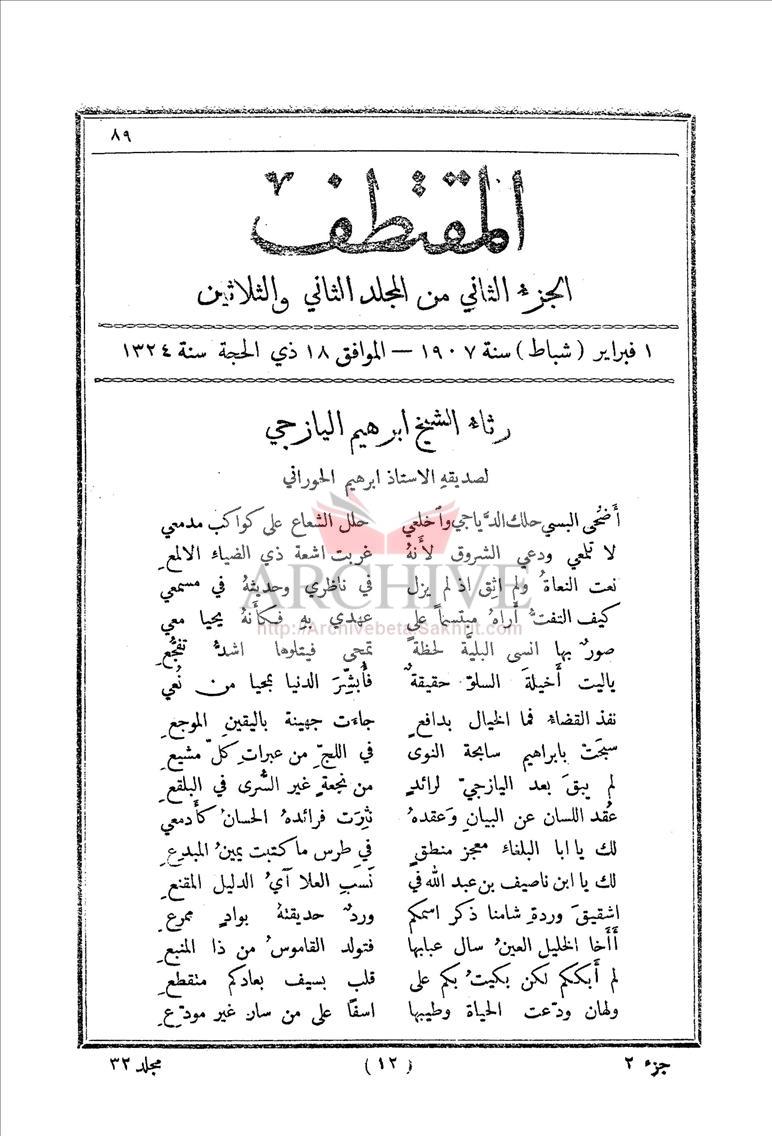 ٨٩
المقتطف
الجزء الثاني من المجلد الثاني والثلاثين
١ فبراير ( شباط ) سنة ١٩٠٧ — الموافق ١٨ ذي الحجة سنة ١٣٢٤
رثاء الشيخ ابرهيم اليازجي
لصديقهِ الاستاذ ابرهيم الحوراني
أَضحى البسي حلك الدَّياجي وٱخلعي حلل الشعاع على كواكب مدمعي
لا تلمعي ودعي الشروق لأَنهُ غربت اشعة ذي الضياء الالمعِ
نعت النعاةُ ولم اثِق اذ لم يزل في ناظري وحديثهُ في مسمعي
كيف التفتُّ أَراهُ مبتسماً على عهدي بهِ فكأَنهُ يحيا معي
صورٌ بها انسى البليَّة لحظةً تمحى فيتلوها اشدُّ تفجُّعِ
ياليت أَخيلةَ السلوّ حقيقةٌ فأُبشِّرَ الدنيا بمحيا من نُعي
نفذ القضاء فما الخيال بدافعٍ جاءَت جهينة باليقينِ الموجعِ
سبحَتْ بابراهيم سابحة النوى في اللجّ من عبراتِ كلّ مشيعِ
لم يبقَ بعد اليازجيّ لرائدٍ من نجعةٍ غير السُّرى في البلقعِ
عُقد اللسان عن البيانِ وعقدهُ نثِرَت فرائدهُ الحسانُ كأَدمعي
لك يا ابا البلغاء معجز منطقٍ في طرس ما كتبت يمينُ المبدعِ
لك يا ابن ناصيف بن عبد الله في نَسَبِ العلا آيُ الدليل المقنعِ
اشقيقَ وردةِ شامنا ذكر اسمكم وردٌ حديقتهُ بوادٍ ممرعِ
أَأَخا الخليل العينُ سال عبابها فتولد القاموسُ من ذا المنبعِ
لم أَبككم لكن بكيتُ بكم على قلبٍ بسيف بعادكم متقطعِ
ولهان ودّعت الحياة وطيبها اسفًا على من سار غير مودّعِ
جزء ٢ (١٢) مجلد ٣٢
ARCHIVE
http://Archivebeta.Sakhrit.com